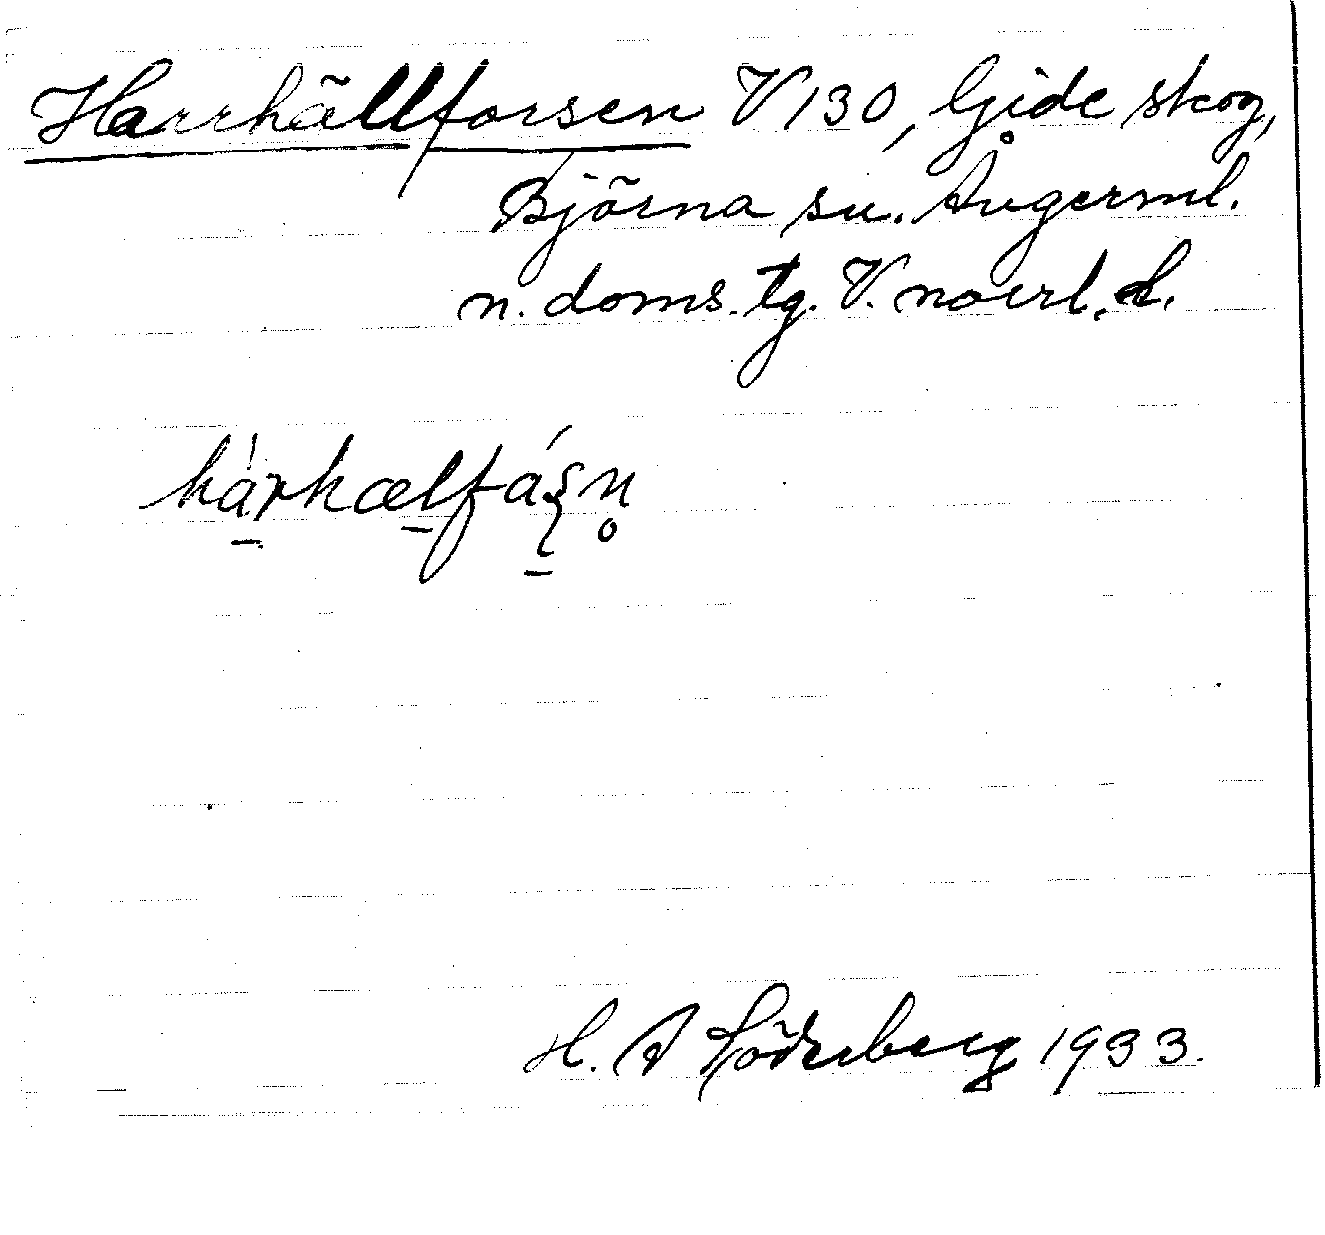 Harrhällforsen V 130, Gide skog,
Björna sn. Ångerml.
n. doms. tg. V. norrl. l.
hàrhælfáʂn̥
H. A Söderberg 1933.